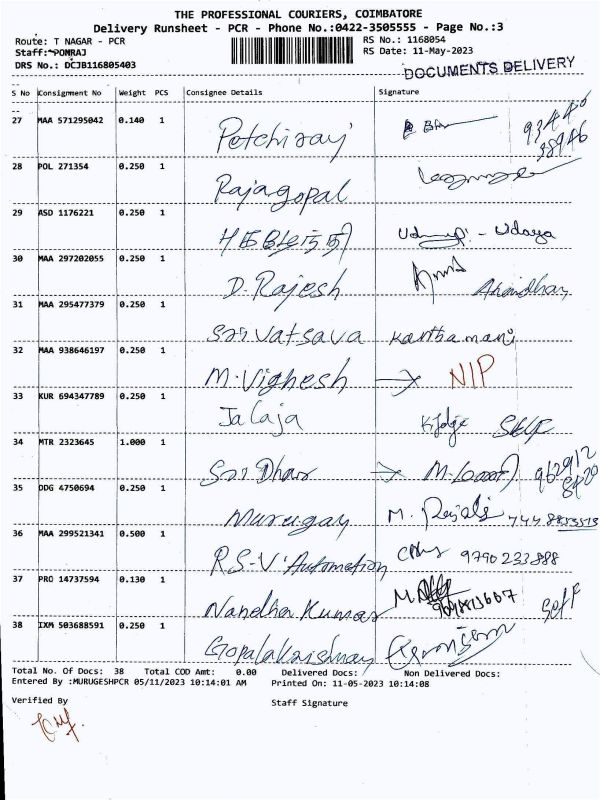 THE PROFESSIONAL COURIERS, COIMBATORE
Delivery Runsheet - PCR - Phone No.:0422-3505555 - Page No.:3
Route: T NAGAR - PCR RS No.: 1168054
Staff: PONRAJ RS Date: 11-May-2023
DRS No.: DCJB116805403 DOCUMENTS DELIVERY
S No Consignment No Weight PCS Consignee Details Signature
27 MAA 571295042 0.140 1 Petchiraj
28 POL 271354 0.250 1 Rajagopal
29 ASD 1176221 0.250 1 - Udaya
30 MAA 297202055 0.250 1 D. Rajesh
31 MAA 295477379 0.250 1 Sri Vatsava Kanthamani
32 MAA 938646197 0.250 1 M. Vighesh → NIP
33 KUR 694347789 0.250 1 Jalaja SELF
34 MTR 2323645 1.000 1 Sri Dhar →
35 DDG 4750694 0.250 1 Murugan M.
36 MAA 299521341 0.500 1 R.S.V. Automation 9790233888
37 PRO 14737594 0.130 1 Nandha Kumar Self
38 IXM 503688591 0.250 1 Gopalakrishnan
Total No. Of Docs: 38 Total COD Amt: 0.00 Delivered Docs: Non Delivered Docs:
Entered By :MURUGESHPCR 05/11/2023 10:14:01 AM Printed On: 11-05-2023 10:14:08
Verified By Staff Signature